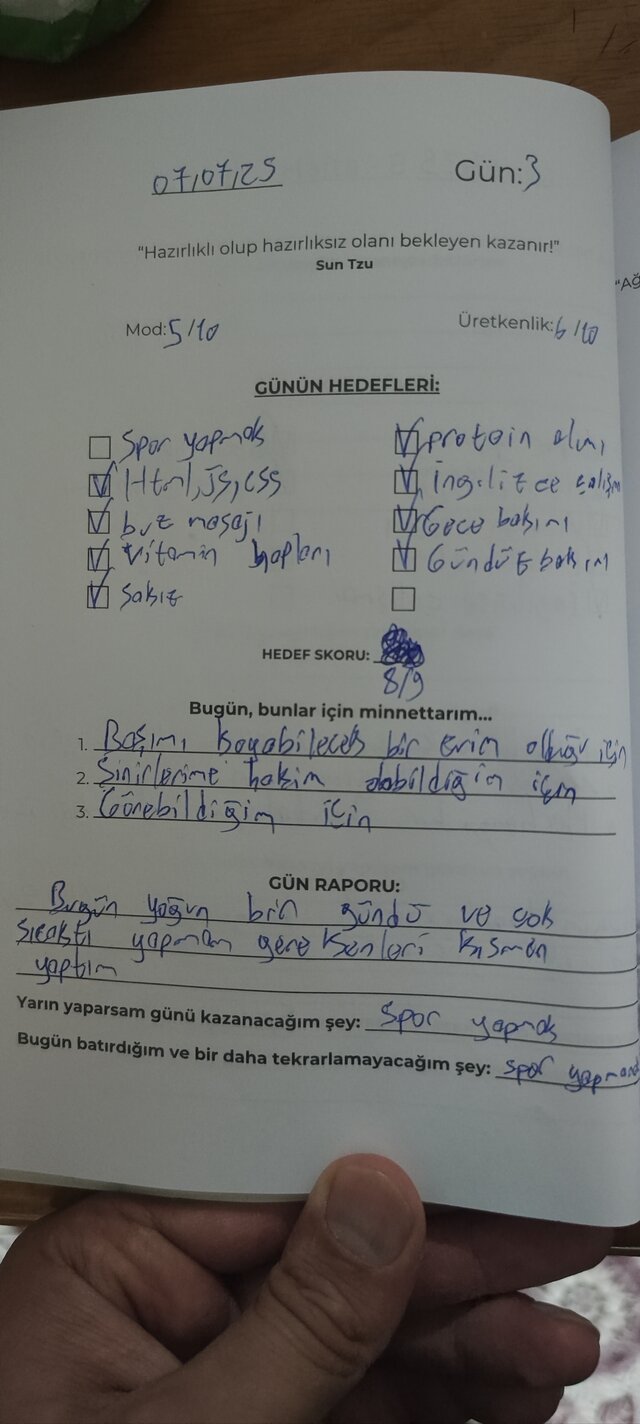 07/07/25 Gün:3
"Hazırlıklı olup hazırlıksız olanı bekleyen kazanır!"
Sun Tzu
Mod:5/10 Üretkenlik:6/10
GÜNÜN HEDEFLERİ:
Spor yapmak protein alımı
Html, js, css İngilizce çalışm
buz masajı Gece bakımı
Vitamin hapları Gündüz bakım
sakız
HEDEF SKORU:
8/9
Bugün, bunlar için minnettarım...
1. Başımı koyabilecek bir evim olduğu için
2. Sinirlerime hakim olabildiğim için
3. Görebildiğim için
GÜN RAPORU:
Bugün yoğun bir gündü ve çok
sıcaktı yapmam gerekenleri kısmen
yaptım
Yarın yaparsam günü kazanacağım şey: Spor yapmak
Bugün batırdığım ve bir daha tekrarlamayacağım şey: spor yapmam
"Ağ